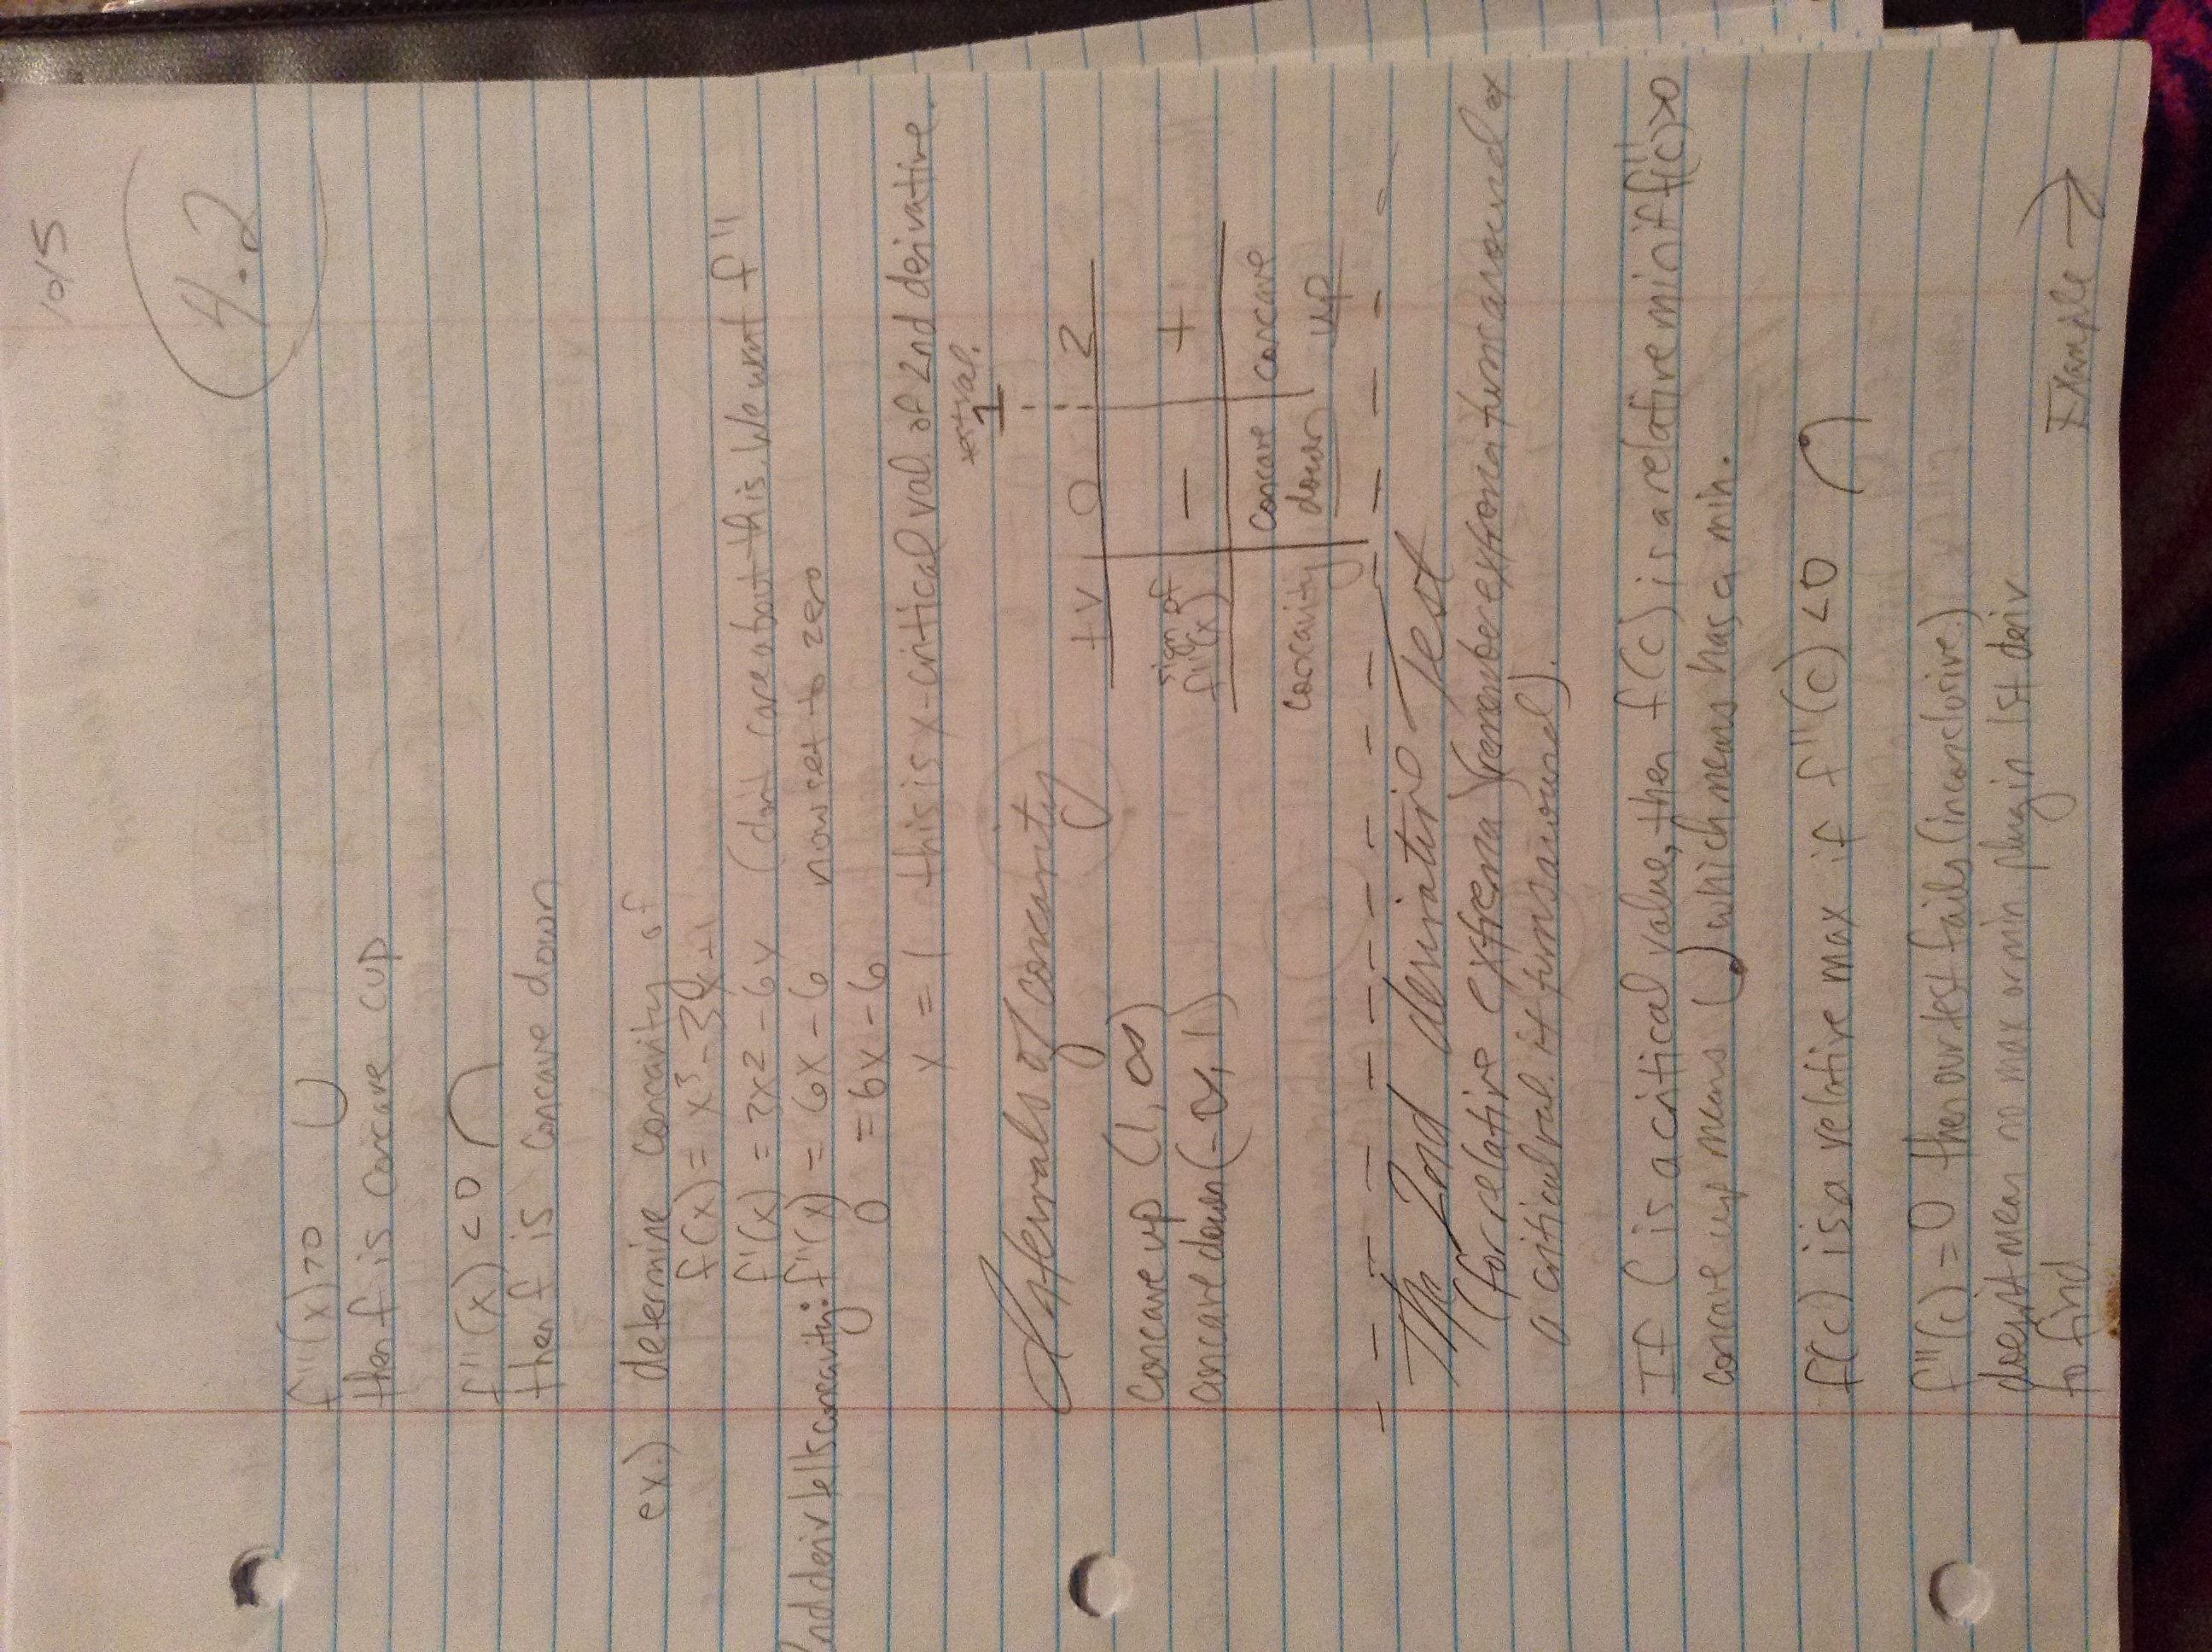 10/5
4.2
f''(x)>0
then f is concave cup
f''(x)<0
then f is concave down
ex.) determine concavity of
f(x) = x³-3x²+1
f'(x) = 3x2-6x (don't care about this. We want f''
2nd deriv tells concavity: f''(x) = 6x-6 now set to zero
0 = 6x-6
x = 1 this is x-critical val. of 2nd derivative.
Intervals of concavity
1
tv 0 2
sign of f''(x) − +
concavity concave down concave up
concave up (1, ∞)
concave down (-∞, 1)
The 2nd derivative Test
(for relative extrema) (remember extrema turns around at
a critical val. it turns around).
If C is a critical value, then f(c) is a relative min if f''(c)>0
concave up means which means has a min.
f(c) is a relative max if f''(c) <0
f''(c) = 0 then our test fails (inconclusive.)
doesn't mean no max or min plug in 1st deriv
to find.
Example →